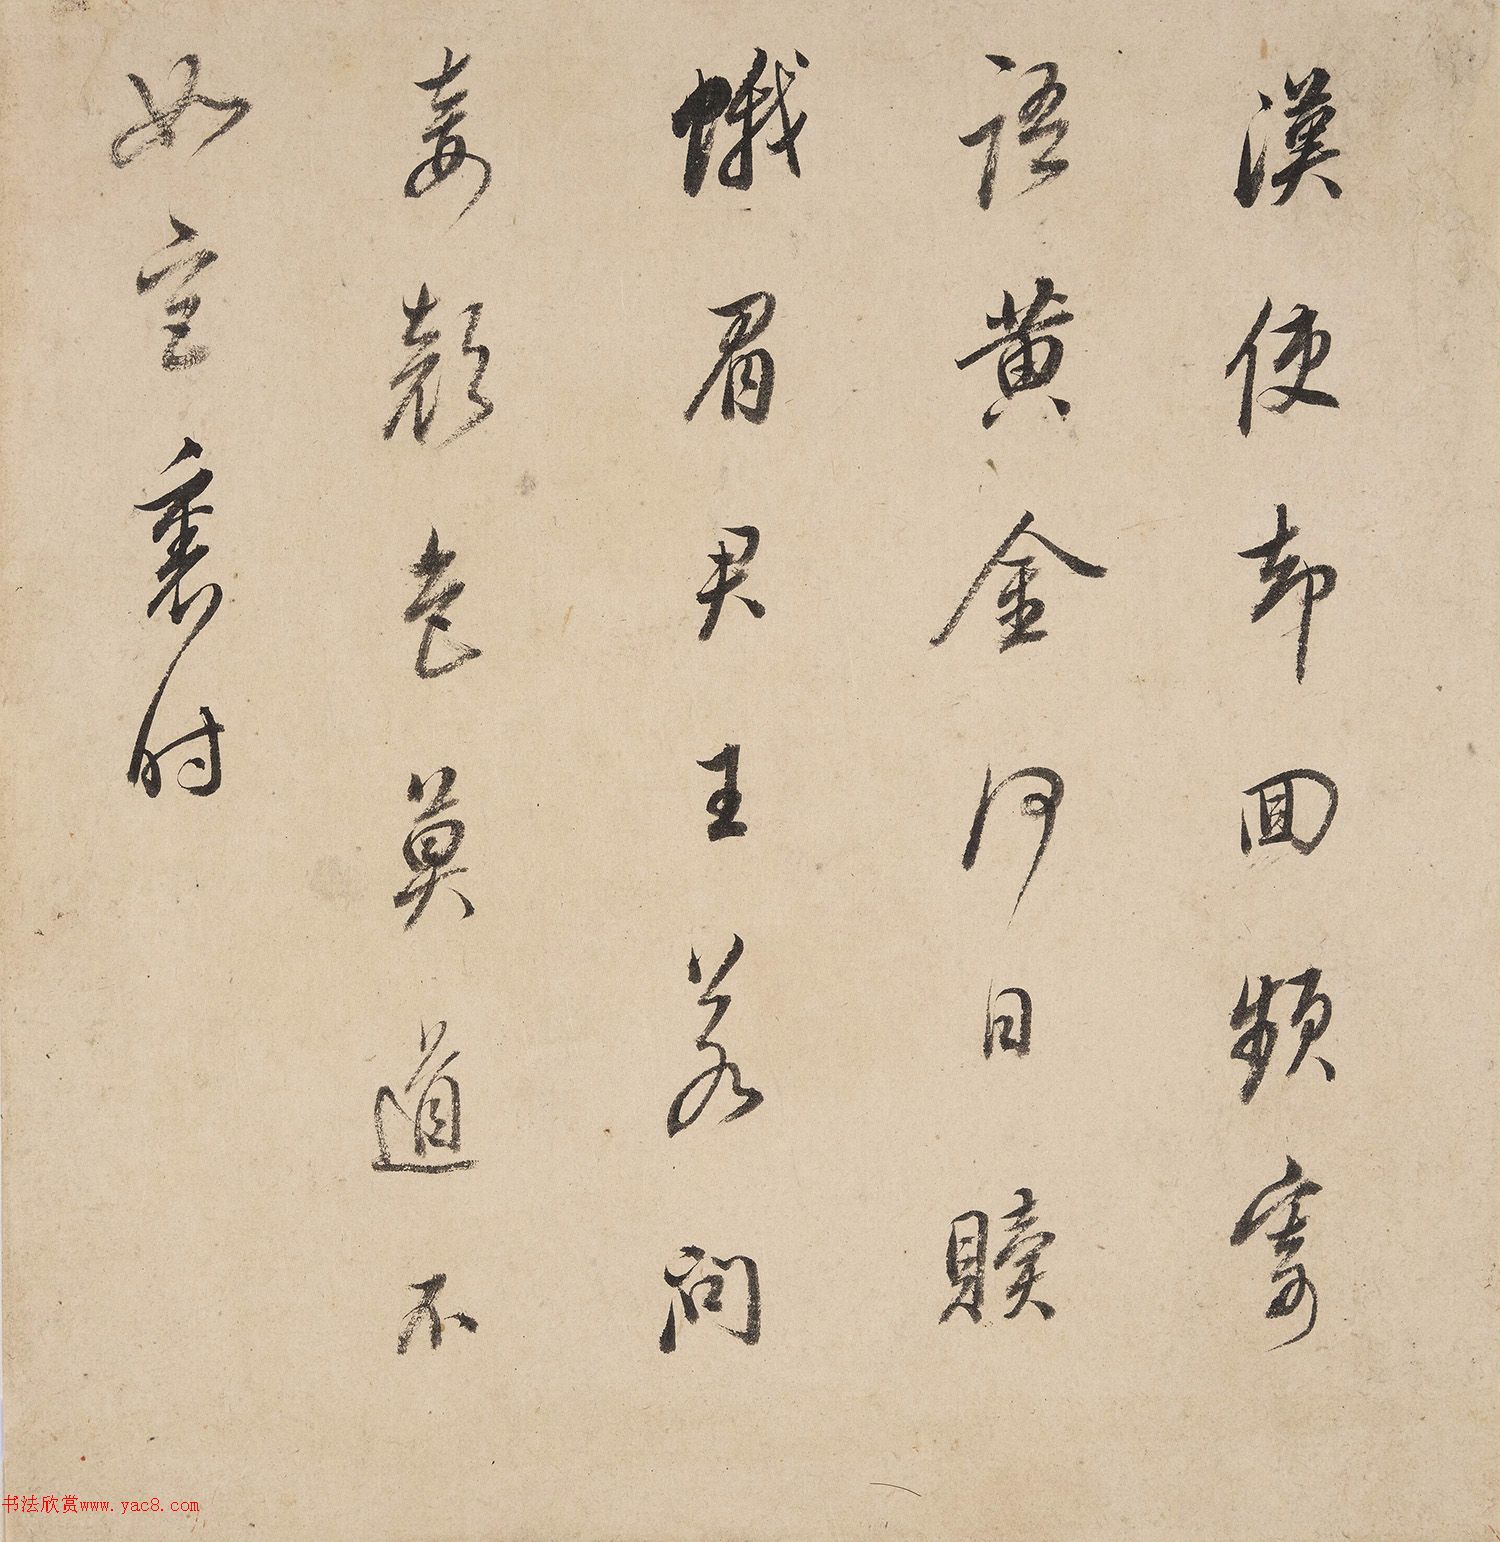 漢使却回頻寄
語黄金何日贖
蛾眉君王若問
妾顔色莫道不
如宫裏时
书法欣赏www.yac8.com